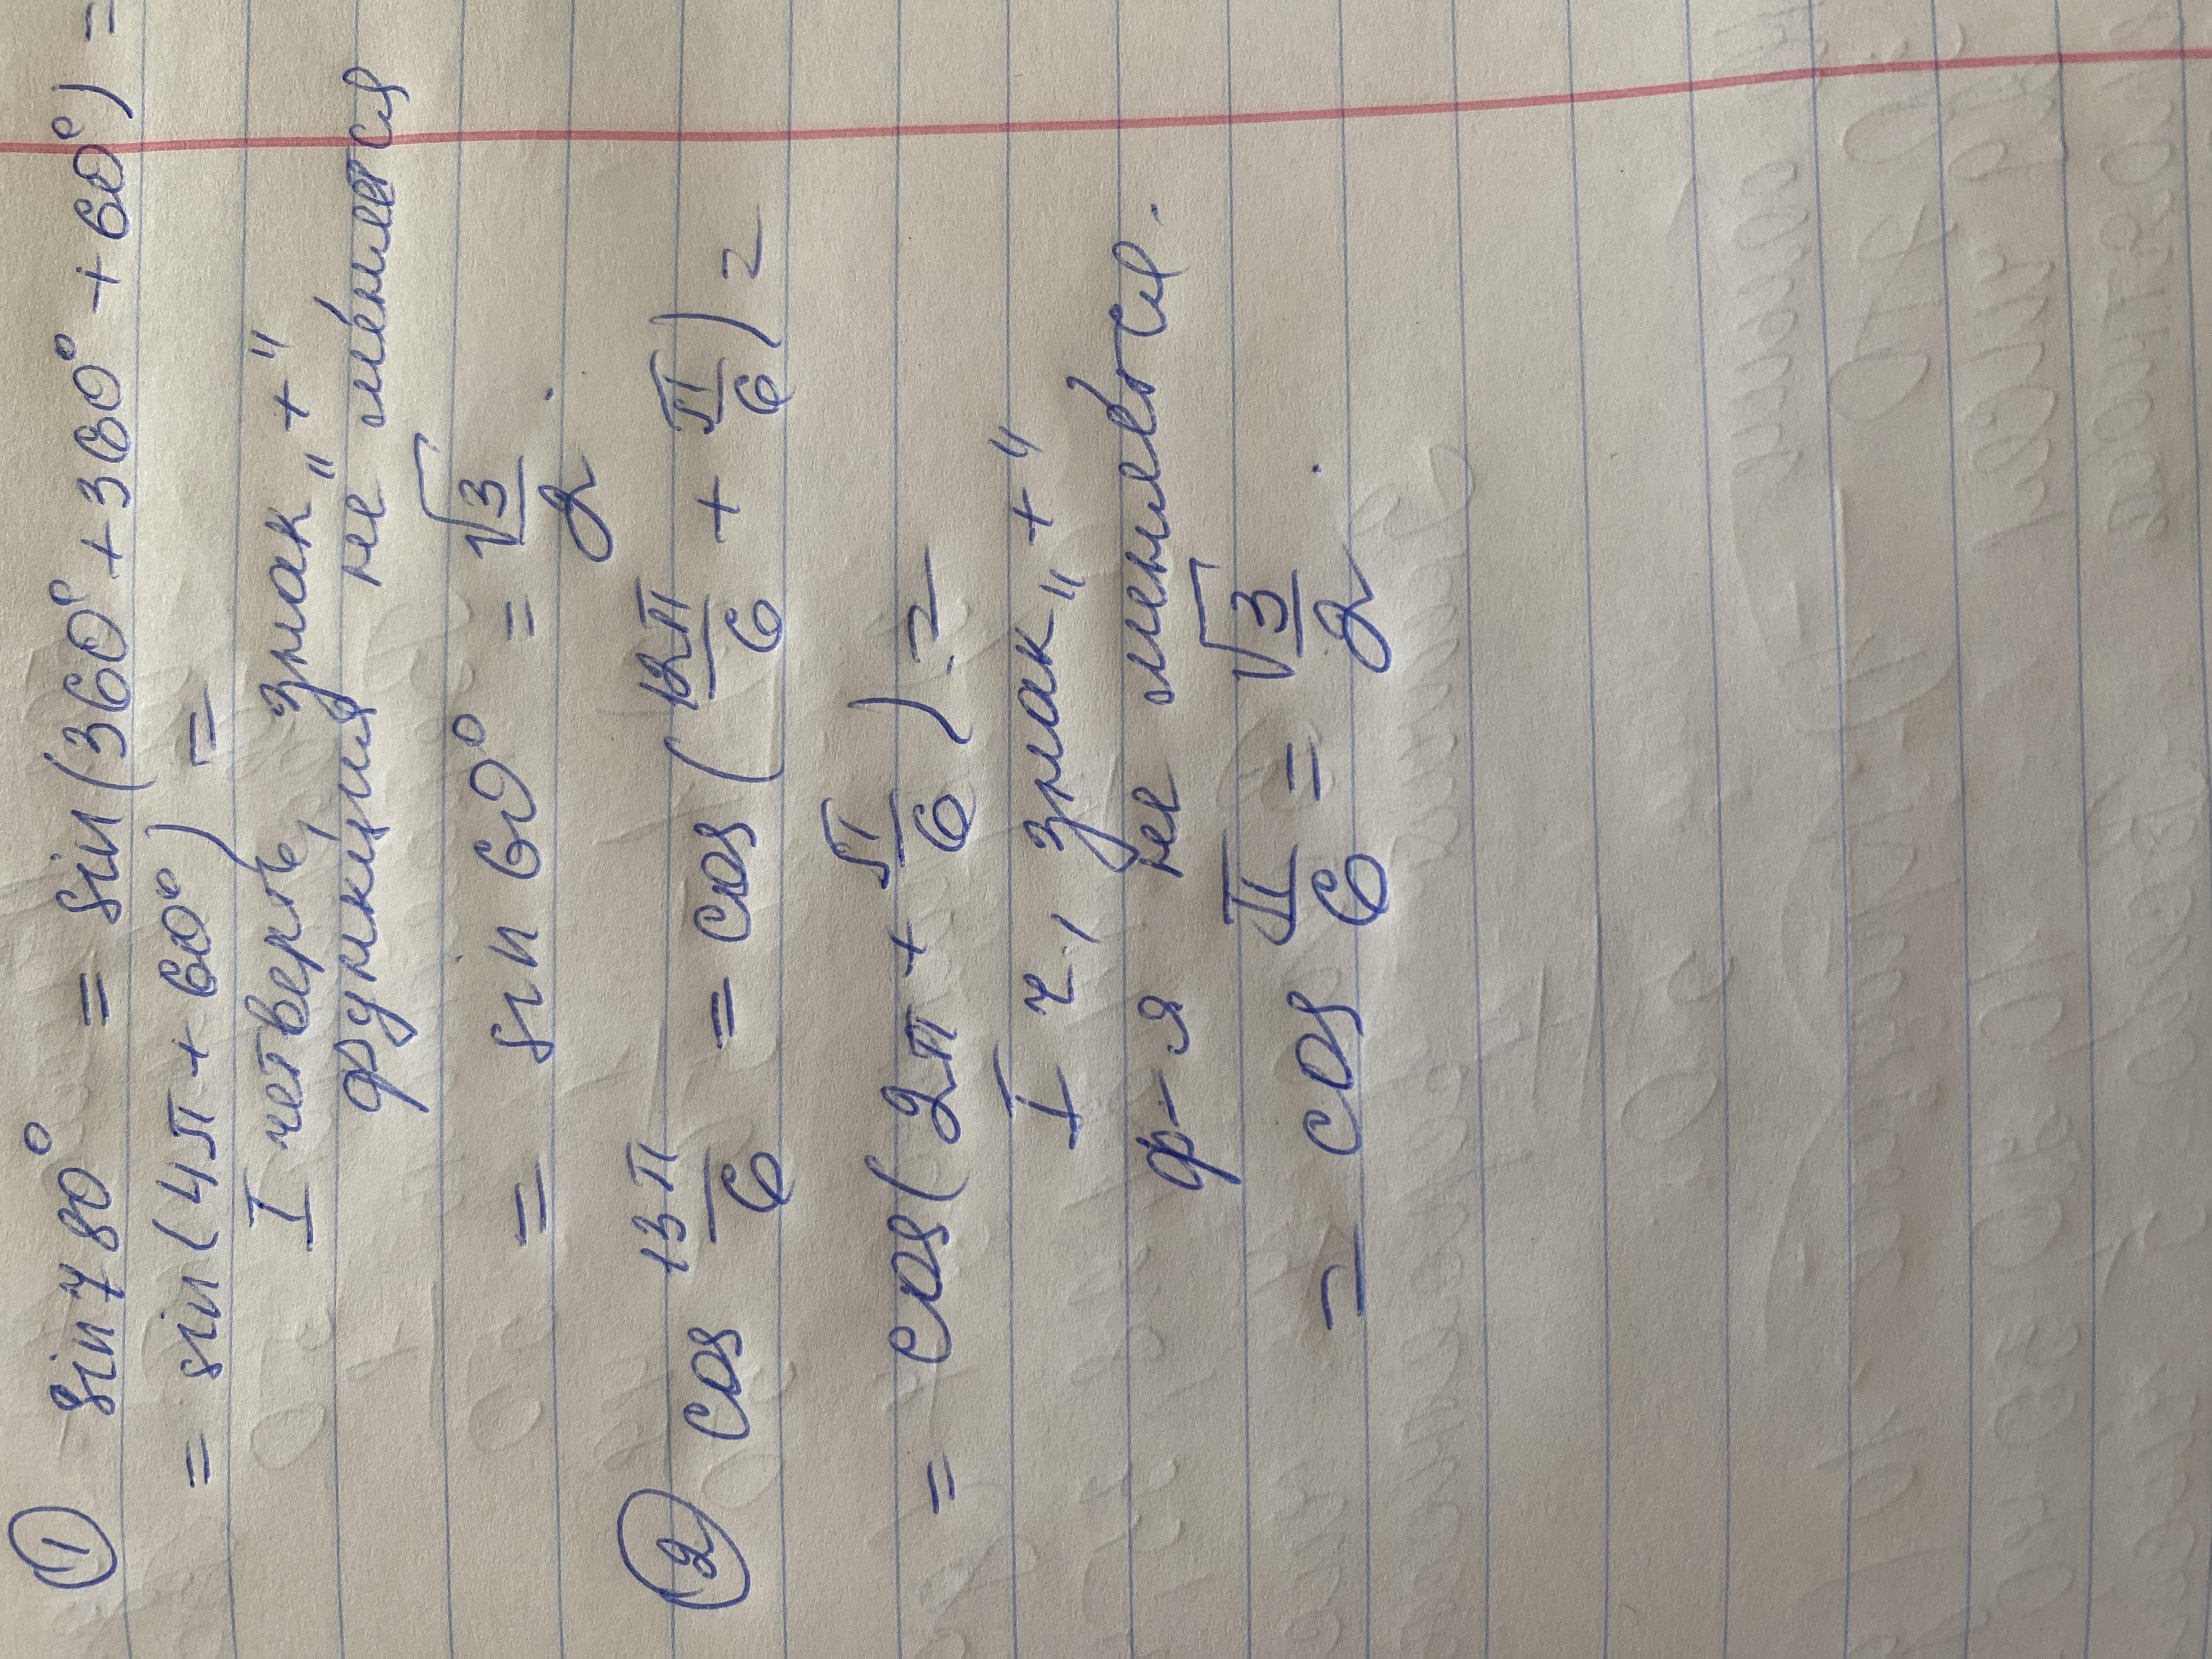 ① sin 780° = sin(360° + 360° + 60°) =
= sin(4π + 60°) =
I четверть, знак „+“
функция не меняется
= sin 60° = √3/2.
② cos 13π/6 = cos(12π/6 + π/6) =
= cos(2π + π/6) =
I ч., знак „+“
ф-я не меняется.
= cos π/6 = √3/2.